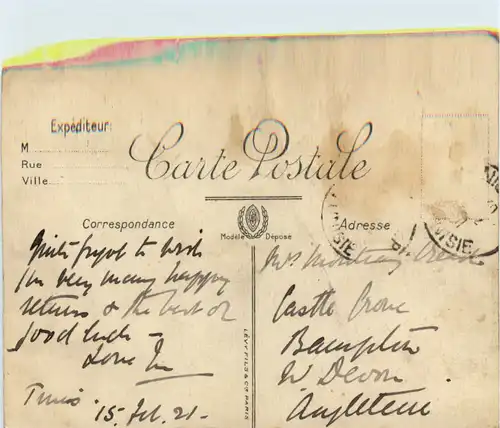 Expéditeur:
M
Rue
Ville
Carte Postale
Correspondance
Modèle Déposé
Adresse
Quite forgot to wish
you very many happy
returns & the best of
good luck —
Love
Tunis
15. Feb. 21.
Mrs
Castle Grove
Bampton
N Devon
Angleterre
LÉVY FILS & Cie PARIS